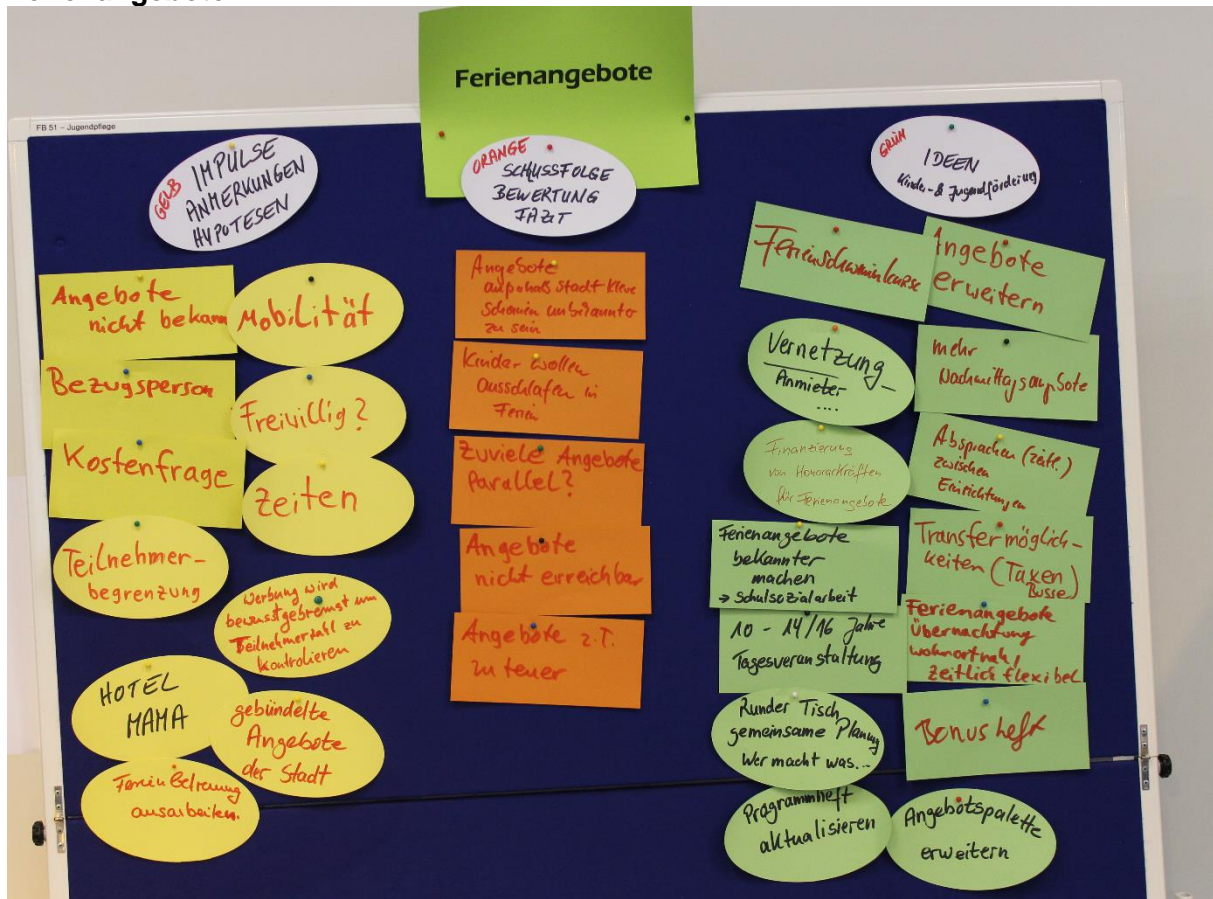 Ferienangebote
FB 51 – Jugendpflege
GELB
IMPULSE
ANMERKUNGEN
HYPOTESEN
Angebote
nicht bekann
Mobilität
Bezugsperson
Freivillig?
Kostenfrage
Zeiten
Teilnehmer-
begrenzung
Werbung wird
bewusst gebremst um
Teilnehmerzahl zu
kontrolieren
HOTEL
MAMA
gebündelte
Angebote
der Stadt
Ferienbetreuung
ausarbeiten.
ORANGE
SCHUSSFOLGE
BEWERTUNG
FAZIT
Angebote
außerhalb Stadt Kleve
scheinen unbekannter
zu sein
Kinder wollen
ausschlafen in
Ferien
Zuviele Angebote
Parallel?
Angebote
nicht erreichbar
Angebote z.T.
zu teuer
GRÜN
IDEEN
Kinder- & Jugendförderung
Ferienschwimmkurse
Angebote
erweitern
Vernetzung
Anmieter
....
mehr
Nachmittagsangebote
Finanzierung
von Honorarkräften
für Ferienangebote
Absprachen (zeitl.)
zwischen
Einrichtungen
Ferienangebote
bekannter
machen
→ Schulsozialarbeit
Transfermöglich-
keiten (Taxen
Busse)
10 - 14/16 Jahre
Tagesveranstaltung
Ferienangebote
Übernachtung
wohnortnah,
zeitlich flexibel
Runder Tisch
gemeinsame Planung
Wer macht was...
Bonusheft
Programmheft
aktualisieren
Angebotspalette
erweitern